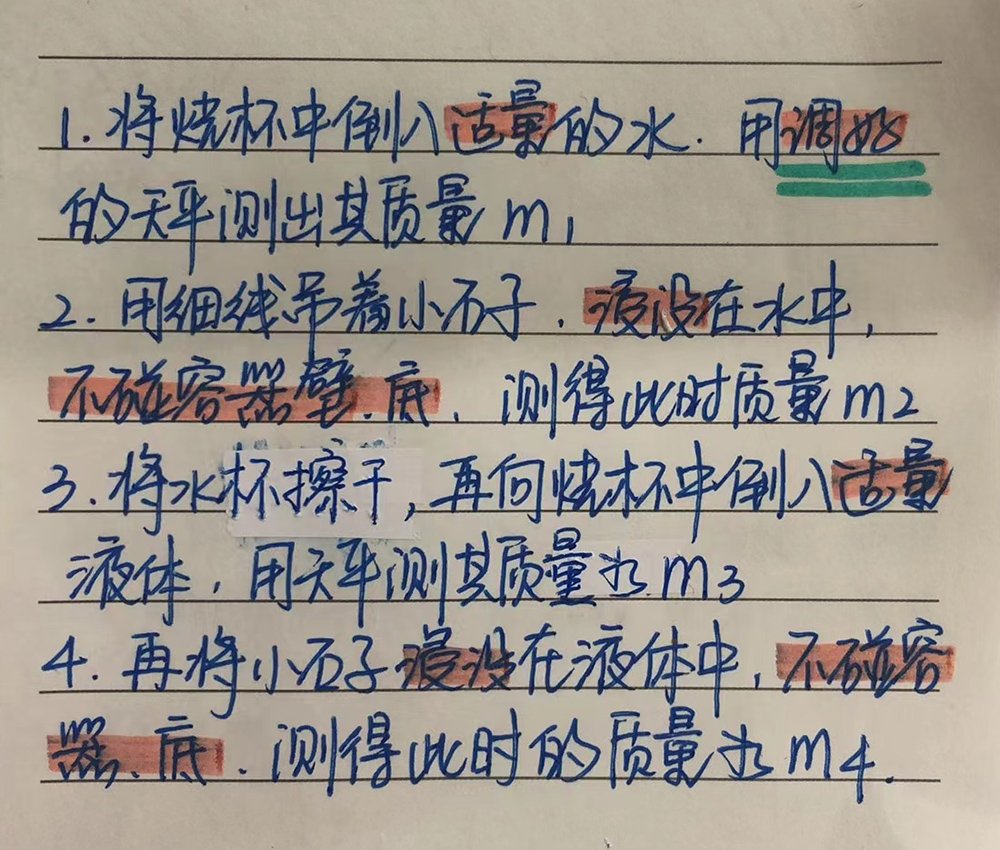 1.将烧杯中倒入适量的水.用调好
的天平测出其质量m1
2.用细线吊着小石子.浸没在水中,
不碰容器壁.底.测得此时质量m2
3.将水杯擦干,再向烧杯中倒入适量
液体,用天平测其质量为m3
4.再将小石子浸没在液体中,不碰容
器.底.测得此时的质量为m4.